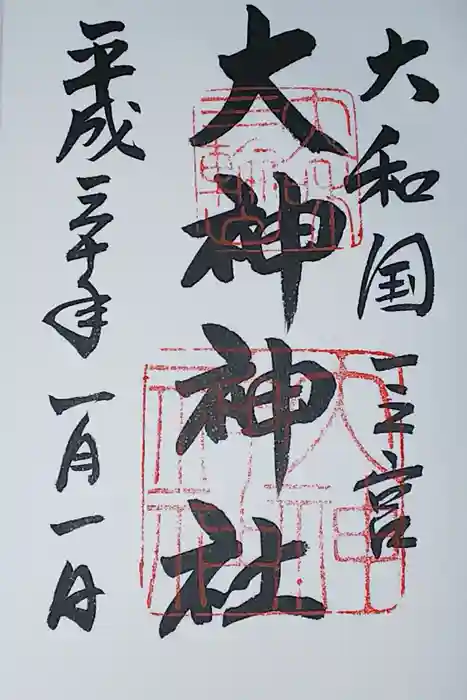 大和国一之宮
大神神社
平成三十年一月一日